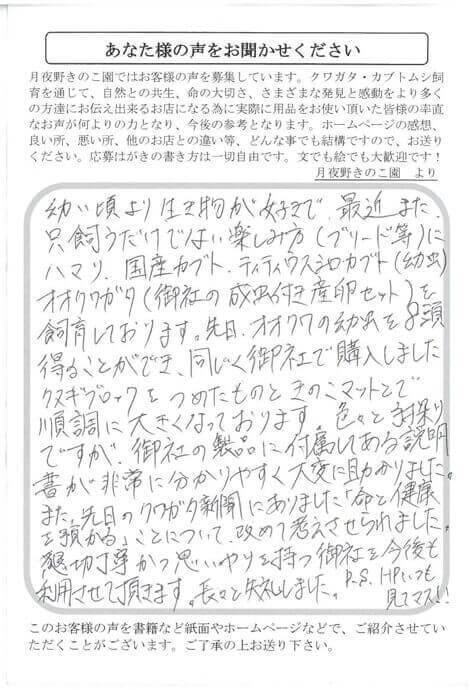 あなた様の声をお聞かせください
月夜野きのこ園ではお客様の声を募集しています。クワガタ・カブトムシ飼
育を通じて、自然との共生、命の大切さ、さまざまな発見と感動をより多く
の方達にお伝え出来るお店になる為に実際に用品をお使い頂いた皆様の率直
なお声が何よりの力となり、今後の参考となります。ホームページの感想、
良い所、悪い所、他のお店との違い等、どんな事でも結構ですので、お送り
ください。応募はがきの書き方は一切自由です。文でも絵でも大歓迎です！
月夜野きのこ園　より
幼い頃より生き物が好きで、最近また、
只飼うだけではない楽しみ方（ブリード等）に
ハマり、国産カブト、ティティウスシロカブト（幼虫）
オオクワガタ（御社の成虫付き産卵セット）を
飼育しております。先日、オオクワの幼虫を8頭
得ることができ、同じく御社で購入しました
クヌギブロックをつめたものときのこマットとで
順調に大きくなっております。色々と手探り
ですが、御社の製品に付属してある説明
書が非常に分かりやすく大変に助かりました。
また、先日のクワガタ新聞にありました「命と健康
を預かる」ことについて、改めて考えさせられました。
懇切丁寧かつ思いやりを持つ御社を今後も
利用させて頂きます。長々と失礼しました。
P.S. HPいつも
見てマス!!
このお客様の声を書籍など紙面やホームページなどで、ご紹介させてい
ただくことがございます。ご了承の上お送り下さい。